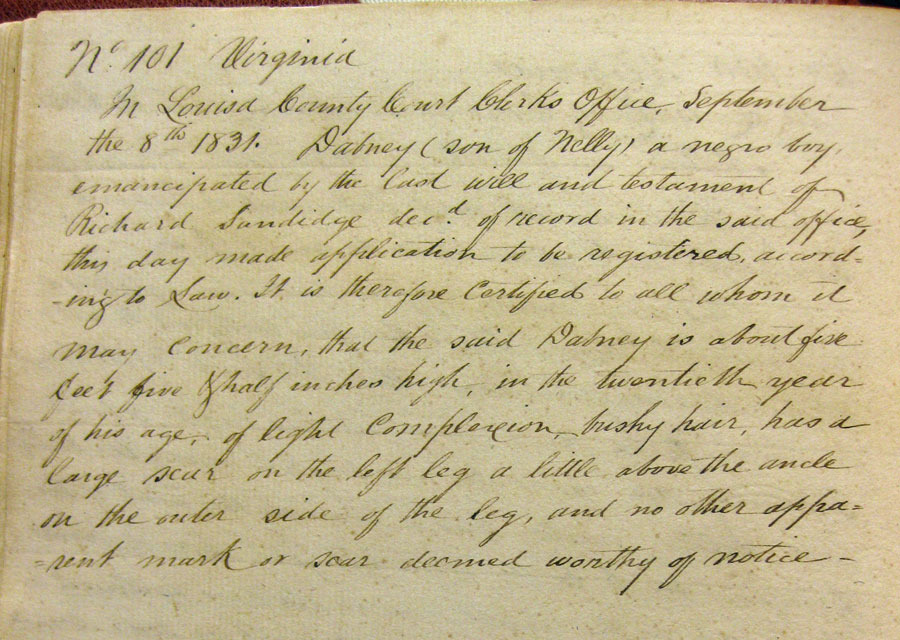 No 101 Virginia
In Louisa County Court Clerks Office, September
the 8th 1831. Dabney (son of Nelly) a negro boy,
emancipated by the last will and testament of
Richard Sandidge decd. of record in the said office,
this day made application to be registered, accord-
-ing to Law. It is therefore Certified to all whom it
may Concern, that the said Dabney is about five
feet five & half inches high, in the twentieth year
of his age, of light Complexion, bushy hair, has a
large scar on the left leg a little above the ancle
on the outer side of the leg, and no other appa=
=rent mark or scar deemed worthy of notice -